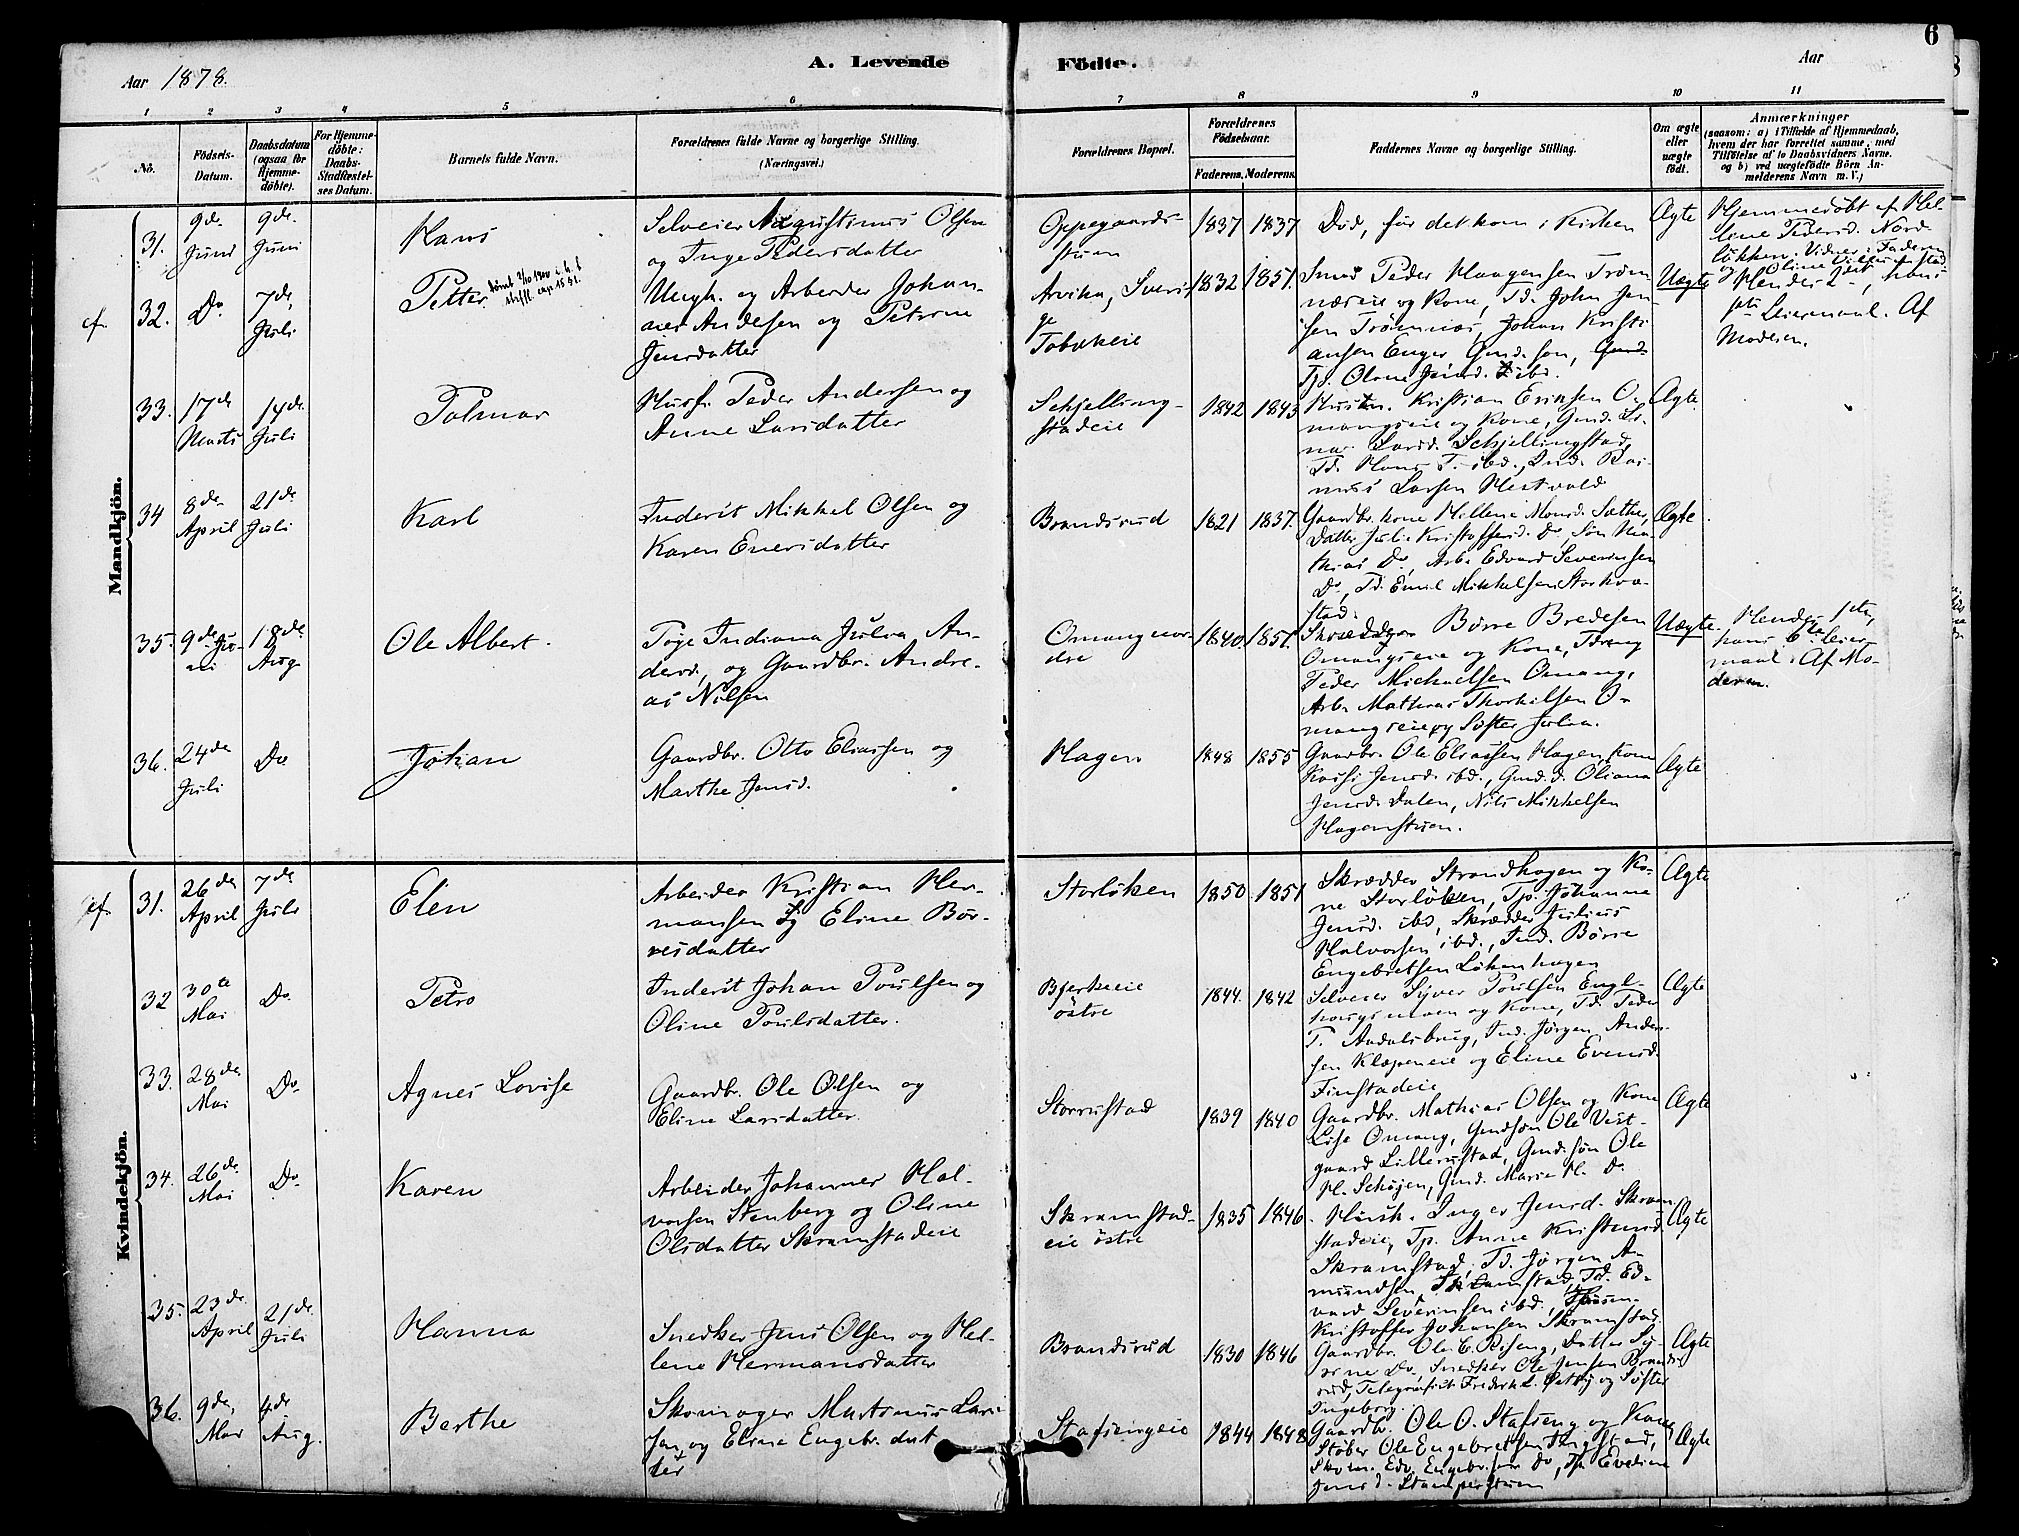 6
Aar 1878.
A. Levende
Födte.
Aar
1 2 3 4 5 6 7 8 9 10 11
No.
Födsels-
Datum.
Daabsdatum
(ogsaa for
Hjemme-
döbte).
For Hjemme-
döbte:
Daabs-
Stadfæstel-
ses Datum.
Barnets fulde Navn.
Forældrenes fulde Navne og borgerlige Stilling.
(Næringsvei.)
Forældrenes Bopæl.
Forældrenes
Födselsaar.
Faderens. Moderens.
Faddernes Navne og borgerlige Stilling.
Om ægte
eller
uægte
födt.
Anmærkninger
(saasom: a) i Tilfælde af Hjemmedaab,
hvem der har forrettet samme, med
Tilföielse af to Daabsvidners Navne,
og b) ved uægtefödte Börn An-
melderens Navn m. V.)
Mandkjön.
31.
9de
Juni
9de
Juni
Hans
Selveier Augustinus Olsen
og Inge Pedersdatter
Oppegaards-
stuen
1837
1837
Död, för det kom i Kirken
Ægte
Hjemmedöbt af Hel-
line Pedersd. Nord-
lökken. Vidner: Faderen
cf.
32.
Do
7de
Juli
Petter
Ungk. og Arbeider Johan-
nes Andersen og Petrine
Jensdatter
Arvika, Sveri-
ge
Tobækeie
1832
1851.
Smed Peder Haagensen Tröm-
næseie og Kone, Td. John Jen-
sen Trömnæs, Johan Kristi-
ansen Enger Gmdsson,
Tp. Oline Jensd. ibd.
Uægte
Hendes 2det, hans
1ste Leiermaal. Af
Moderen.
33.
17de
Marts
14de
Juli
Palmar
Husf. Peder Andersen og
Anne Larsdatter
Schjelling-
stadeie
1842
1843
Husm. Kristian Eriksen O-
mangseie og Kone, Gmd. Li-
na Larsd. Schjellingstad,
Td. Hans T. ibd., Ind. Ras-
mus Larsen Hestvold
Ægte.
34
8de
April
21de
Juli
Karl
Inderst Mikkel Olsen og
Karen Eversdatter
Brandsrud
1821
1837.
Gaardbr. kone Hellene Monsd. Sæther,
Datter Julie Kristoffersd. Do, Sön Ma-
thias Do, Arb. Edvard Severinsen
Do, Td. Emil Mikkelsen Storhva-
stad.
Ægte
35.
9de Ju-
ni
18de
Aug
Ole Albert.
Pige Indiana Julia An-
dersd., og Gaardbr. Andre-
as Nilsen
Omang nor-
dre
1840.
1851.
Skrædder Börre Bredesen
Omangseie og Kone, Tdreng
Peder Michaelsen Omang,
Arb. Mathias Thorkilsen O-
mangseie og Söster Julia.
Uægte.
Hendes 1ste,
hans 6te Leier-
maal. Af Mo-
deren.
36.
24de
Juli
Do
Johan
Gaardbr. Otto Eliassen og
Marthe Jensd.
Hagen
1848
1855
Gaardbr. Ole Eliassen Hagen, Kone
Kaisi Jensd. ibd., Gmd. d. Oliana
Jensd. Dalen, Nils Mikkelsen
Hagenstuen.
Ægte
Kvindekjön.
cf.
31.
26de
April
7de
Juli
Elen
Arbeider Kristian Her-
mansen og Eline Bör-
resdatter
Storlöken
1850.
1851
Skrædder Strandhagen og Ko-
ne Storlöken, Tp. Johanne
Jensd. ibd, Skrædder Julius
Halvorsen ibd., Ind. Börre
Engebretsen Lökenhagen
Ægte
32
30te
Mai
Do
Petra
Inderst Johan Poulsen og
Oline Poulsdatter.
Bjerkeeie
östre
1844.
1842
Selveier Syver Poulsen Engel-
haugsmoen og Kone, Td. Peder
P. Aadalsbrug, Ind. Jörgen Ander-
sen Klæpeneie og Eline Evensd.
Finstadeie
Ægte
33.
28de
Mai
Do
Agnes Lovise
Gaardbr. Ole Olsen og
Eline Larsdatter.
Storrustad
1839
1840
Gaardbr. Mathias Olsen og Kone
Lise Omang, Gmdsön Ole Vest-
gaard Lillerustad, Gmd. sön Ole
H. Schöjen, Gmd. Marie H. Do
Ægte
34.
26de
Mai
Do
Karen
Arbeider Johannes Hal-
vorsen Stenberg og Oline
Olsdatter Skramstadeie
Skramstad-
eie östre
1835
1846.
Hush. Inger Jensd. Skram-
stadeie, Tp. Anne Kristensd.
Skramstad, Td. Jörgen A-
mundsen Skramstad, Td. Ed-
vard Severinsen ibd.,
Kristoffer Johansen Skramstad.
Ægte
35.
23de
April
21de
Juli
Hanna
Snedker Jens Olsen og Hel-
lene Hermansdatter
Brandsrud
1830
1846
Gaardbr. Ole E. Berseng, Datter Sy-
verine Do, Snedker Ole Jensen Brands-
rud, Telegrafist Frederik L. Petty og Söster
Ingeborg.
Ægte
36.
9de
Mai
4de
Aug.
Berthe
Skomager Martinus Lar-
sen, og Eline Engebr. dat-
ter
Stafsengeie
1844
1848
Gaardbr. Ole O. Stafseng og Kone,
Stöber Ole Engebretsen Fingstad,
Skom. Edv. Engebr.sen Do, Tp. Eveline
Jensd. Stamperstuen
Ægte